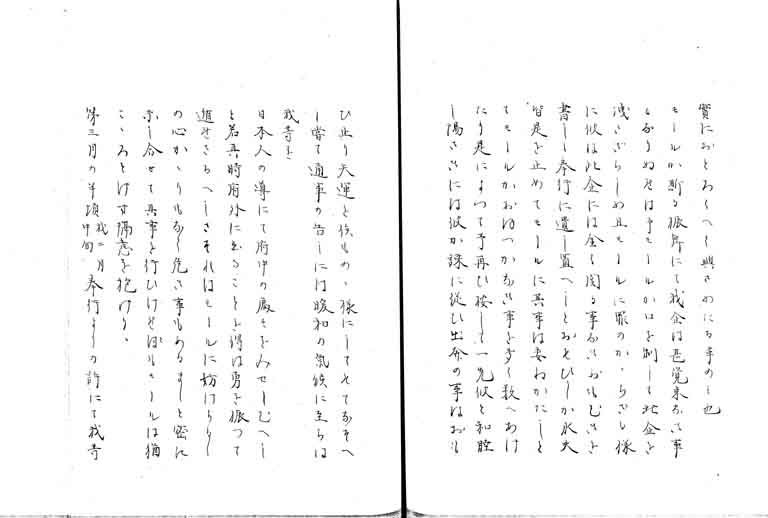 實におとろくへく興さめたる事のミ也
モールか斯る振舞にて我企は甚覚束なき事
となりぬ予モールか口を制して此企を
洩さざらしめ且モールに罪のかゝらさる様
に彼は此企には全く関る事なきおもむきを
書し奉行に遣し置へしとおもひしか水夫
皆是を止めてモールに其事は委ねかたしと
てモールかおほつかなき事を多く数へあけ
たり是によつて予再ひ按して一先彼と和睦
し陽さまには彼か謀に従ひ出奔の事はおも
ひ止り天運を俟ものゝ様にしてもてなすへ
し嘗て通事の告しには暖和の気候に至らは
我等を
日本人の導にて府中の處々をみせしむへし
と若其時府外に出ることを得は勇を振つて
へしさモールに妨けられし
の心かゝりもなし危き事もあるましと密に
示し合せて其事を行ひモールは猶
こゝろとけす隔意を抱けり、
第三月の半頃我二月中旬奉行よりの許にて我等